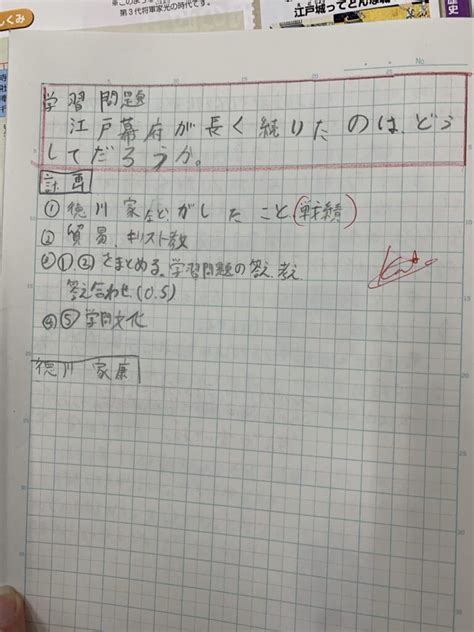 しくみ
第3代将軍家光の時代です。
江戸城ってどんな
歴史
No
学習問題
江戸幕府が長く続いたのは、どう
してだろうか。
計画
① 徳川家などがしたこと(戦績)
② 貿易、キリスト教
①②をまとめる。学習問題の答え、考え
答え合わせ(0.5)
④⑤学問文化
徳川家康